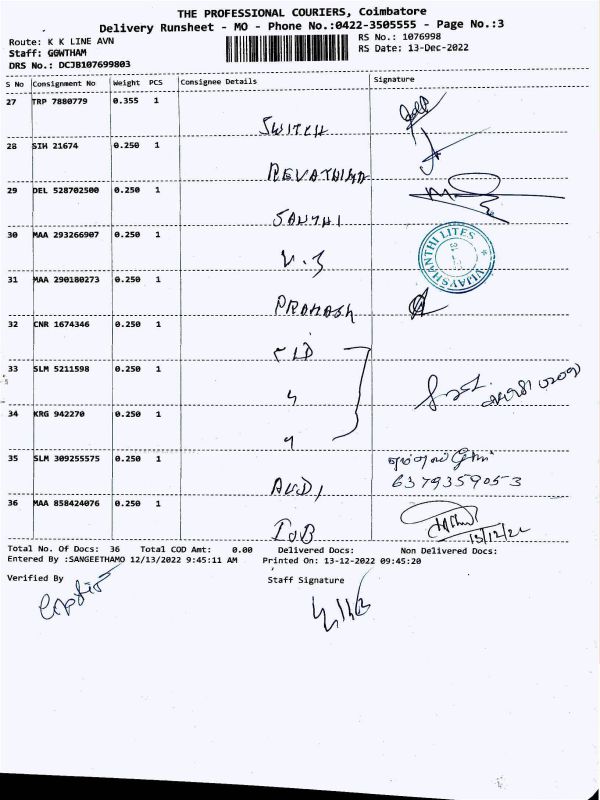 THE PROFESSIONAL COURIERS, Coimbatore
Delivery Runsheet - MO - Phone No.:0422-3505555 - Page No.:3
Route: K K LINE AVN
RS No.: 1076998
Staff: GOWTHAM
RS Date: 13-Dec-2022
DRS No.: DCJB107699803
S No Consignment No Weight PCS Consignee Details Signature
27 TRP 7880779 0.355 1
SWITCH
28 SIH 21674 0.250 1
29 DEL 528702500 0.250 1
SANTHI
30 MAA 293266907 0.250 1
V.J
VIJAYSHANTHI LITES
31 MAA 290180273 0.250 1
PRAKASH
32 CNR 1674346 0.250 1
33 SLM 5211598 0.250 1
34 KRG 942270 0.250 1
35 SLM 309255575 0.250 1
6379359053
AUDI
36 MAA 858424076 0.250 1
IOB
13/12/22
Total No. Of Docs: 36 Total COD Amt: 0.00 Delivered Docs: Non Delivered Docs:
Entered By :SANGEETHAMO 12/13/2022 9:45:11 AM Printed On: 13-12-2022 09:45:20
Verified By Staff Signature